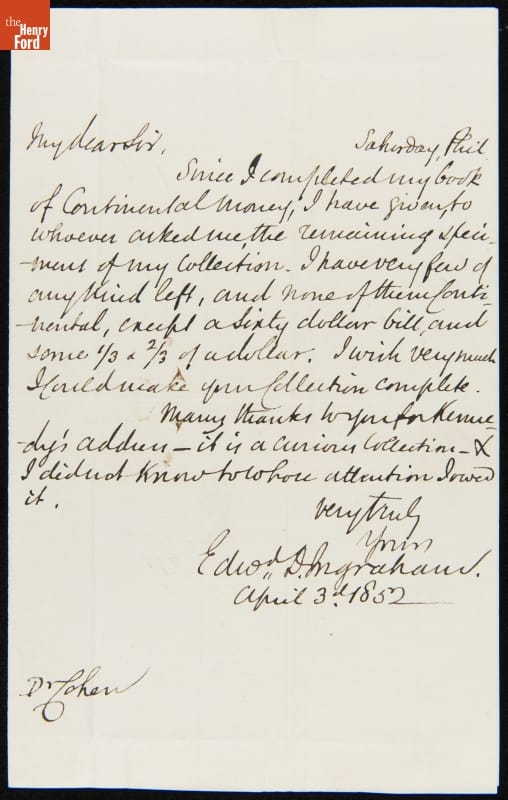 the
Henry
Ford
My dear Sir,
Saturday, Phil
Since I completed my book
of Continental Money, I have given, to
whoever asked me, the remaining speci-
mens of my collection. I have very few of
any kind left, and none of them Conti-
nental, except a sixty dollar bill, and
some 1/3 & 2/3 of a dollar. I wish very much
I could make your Collection complete.
Many thanks to you for Kenne-
dy's address — it is a curious collection — &
I did not know to whose attention I owed
it.
very truly
Yours
Edwd. D. Ingraham.
April 3d. 1852
Dr Cohen